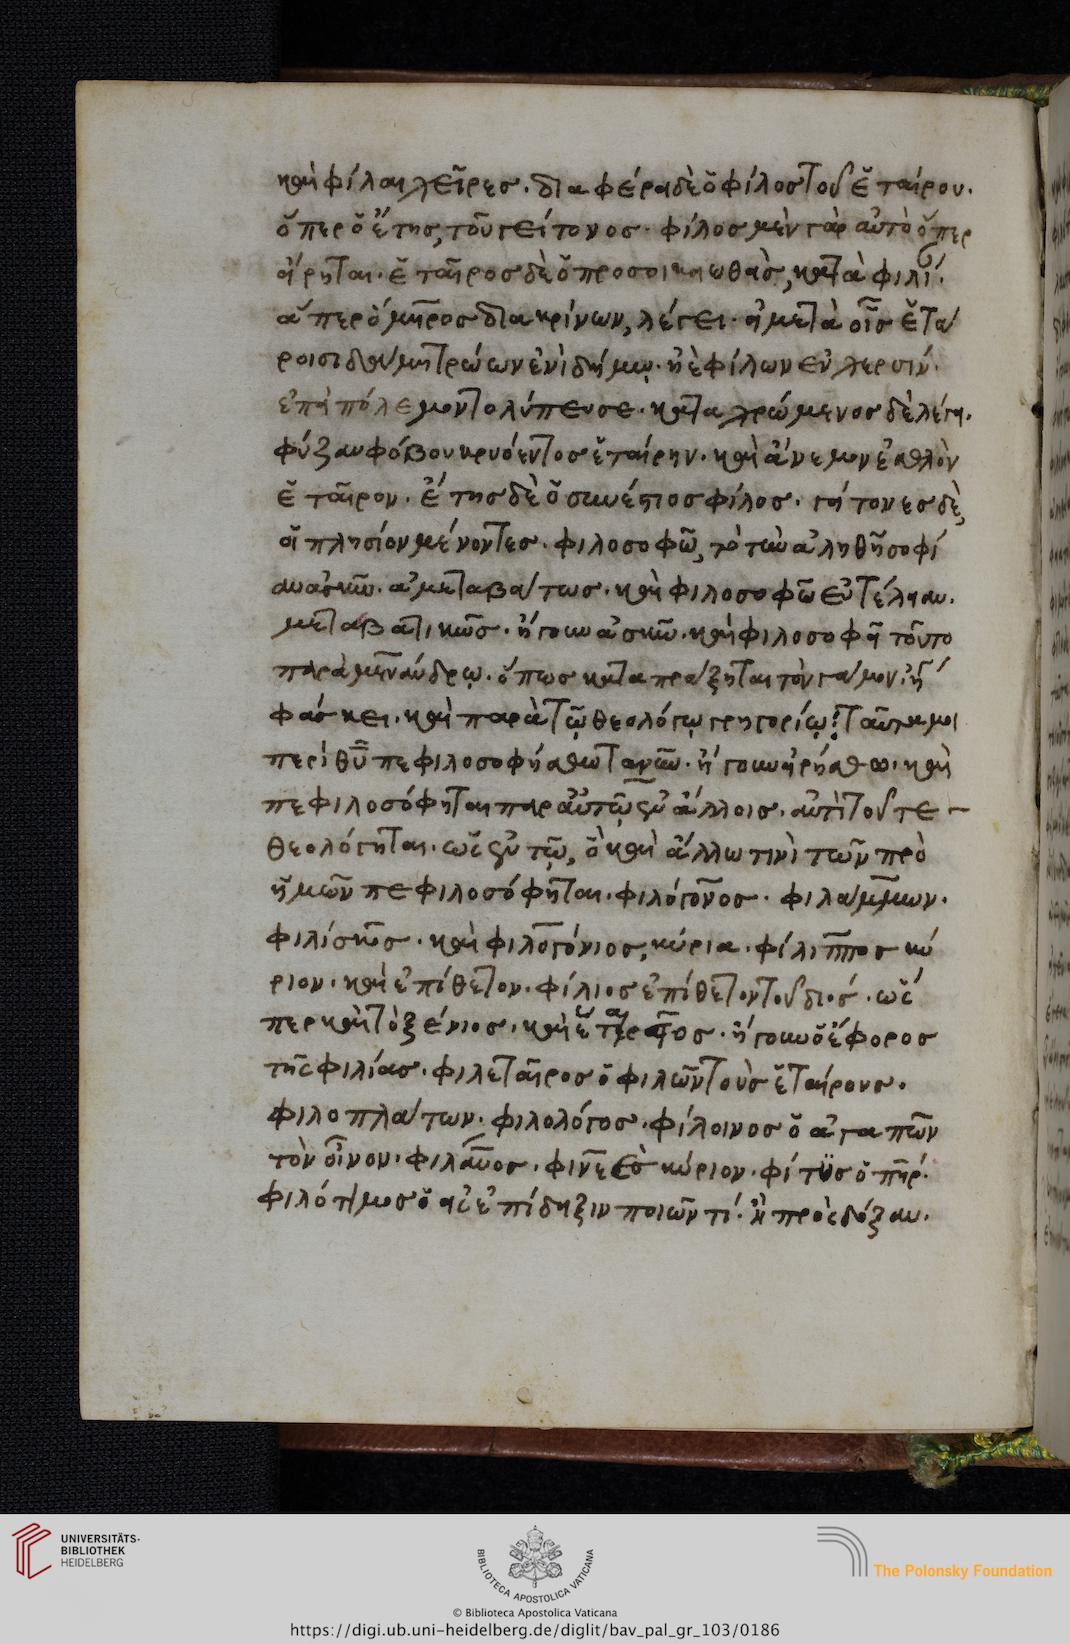 καὶ φίλαι χεῖρες. διαφέρει δὲ ὁ φίλος τοῦ ἑταίρου.
ὅπερ ὁ ἔτης, τοῦ γείτονος. φίλος μὲν γὰρ αὐτὸ ὅπερ
εἴρηται. ἑταῖρος δὲ ὁ προσοικειωθεὶς, κατὰ φιλί.
ἅπερ ὅμηρος διακρίνων, λέγει. ἢ μετὰ οἷς ἑτά
ροισι δάμη τρώων ἐνὶ δήμῳ. ἠὲ φίλων ἐν χερσίν.
ἐπεὶ πόλεμον τολύπευσε. καταχρώμενος δὲ λέγει.
φύζαν φόβου κρυόεντος ἑταίρην. καὶ ἄνεμον ἐσθλὸν
ἑταῖρον. ἔτης δὲ ὁ συνέτιος φίλος. γείτονες δὲ,
οἱ πλησίον μένοντες. φιλοσοφῶ, τὸ τὴν ἀληθῆ σοφί
αν ἀσκῶ. ἀμεταβάτως. καὶ φιλοσοφῶ εὐτέλειαν.
μεταβατικῶς. ἤγουν ἀσκῶ. καὶ φιλοσοφεῖ τοῦτο
παρὰ μενάνδρῳ. ὅπως καταπράξηται τὸν γάμον.
φάσκει. καὶ παρὰ τῷ θεολόγῳ γρηγορίῳ. ταῦτά μοι
περὶ θῦ πεφιλοσοφήσθω τανῦν. ἤγουν εἰρήσθω. καὶ
πεφιλοσόφηται παρ αὐτῷ ἐν ἄλλοις. ἀντὶ τοῦ τε
θεολόγηται. ὡς ἐν τῷ, ὃ καὶ ἄλλω τινὶ τῶν πρὸ
ἡμῶν πεφιλοσόφηται. φιλόγονος. φιλάμμων.
φιλίσκος. καὶ φιλογόνιος, κύρια. φίλιππος κύ
ριον. καὶ ἐπίθετον. φίλιος ἐπίθετον τοῦ διός. ὥσ
περ καὶ τὸ ξένιος. καὶ ἑταιρεῖος. ἤγουν ὁ ἔφορος
τῆς φιλίας. φιλεταῖρος ὁ φιλῶν τοὺς ἑταίρους.
φιλοπλάτων. φιλολόγος. φίλοινος ὁ ἀγαπῶν
τὸν οἶνον. φίλαυτος. φινεὲς κύριον. φίτυς ὁ πηρ.
φιλότιμος ὁ εἰς ἐπίδειξιν ποιῶν τί. ἢ πρὸς δόξαν.
UNIVERSITÄTS-
BIBLIOTHEK
HEIDELBERG
BIBLIOTECA APOSTOLICA VATICANA
The Polonsky Foundation
© Biblioteca Apostolica Vaticana
https://digi.ub.uni-heidelberg.de/diglit/bav_pal_gr_103/0186